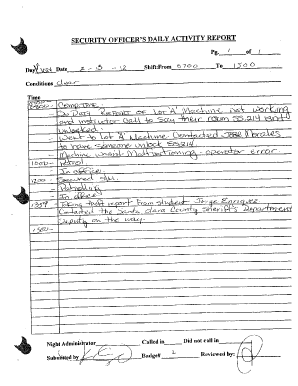 SECURITY OFFICER'S DAILY ACTIVITY REPORT
Pg. 1 of 1
Day Date 2-15-12 Shift:From 0700 To 1500
Conditions clear
Time
Computime
REPORT OF Lot "A" Machine not working
and instructor call to say their room SS.214 isn't
unlocked.
Went to Lot "A" Machine Contacted Morales
to have someone unlock SS214
Machine wasn't Malfunctioning, operator error
1000- Patrol
In office
1200- Secured
Patrolling
In office
Taking theft report from student Jorge
Contacted the Santa Clara County Sheriff's Department
Deputy on the way.
1500
Night Administrator Called in Did not call in
Submitted by Badge# 2 Reviewed by: